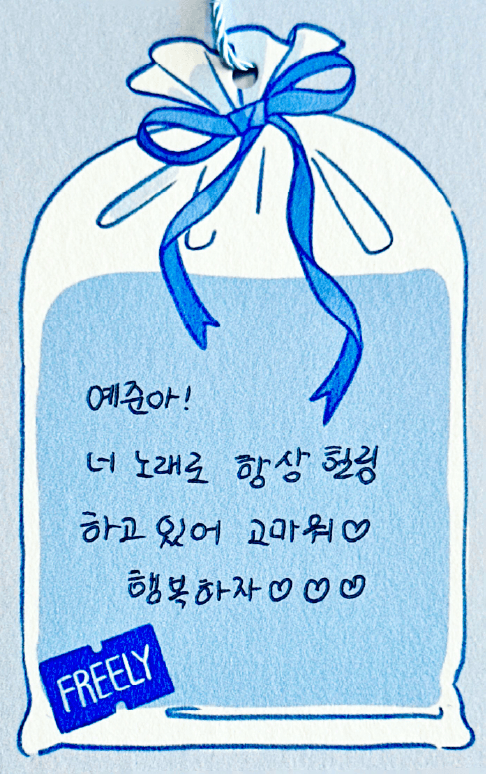 예준아!
너 노래로 항상 힐링
하고 있어 고마워♡
행복하자♡♡♡
FREELY